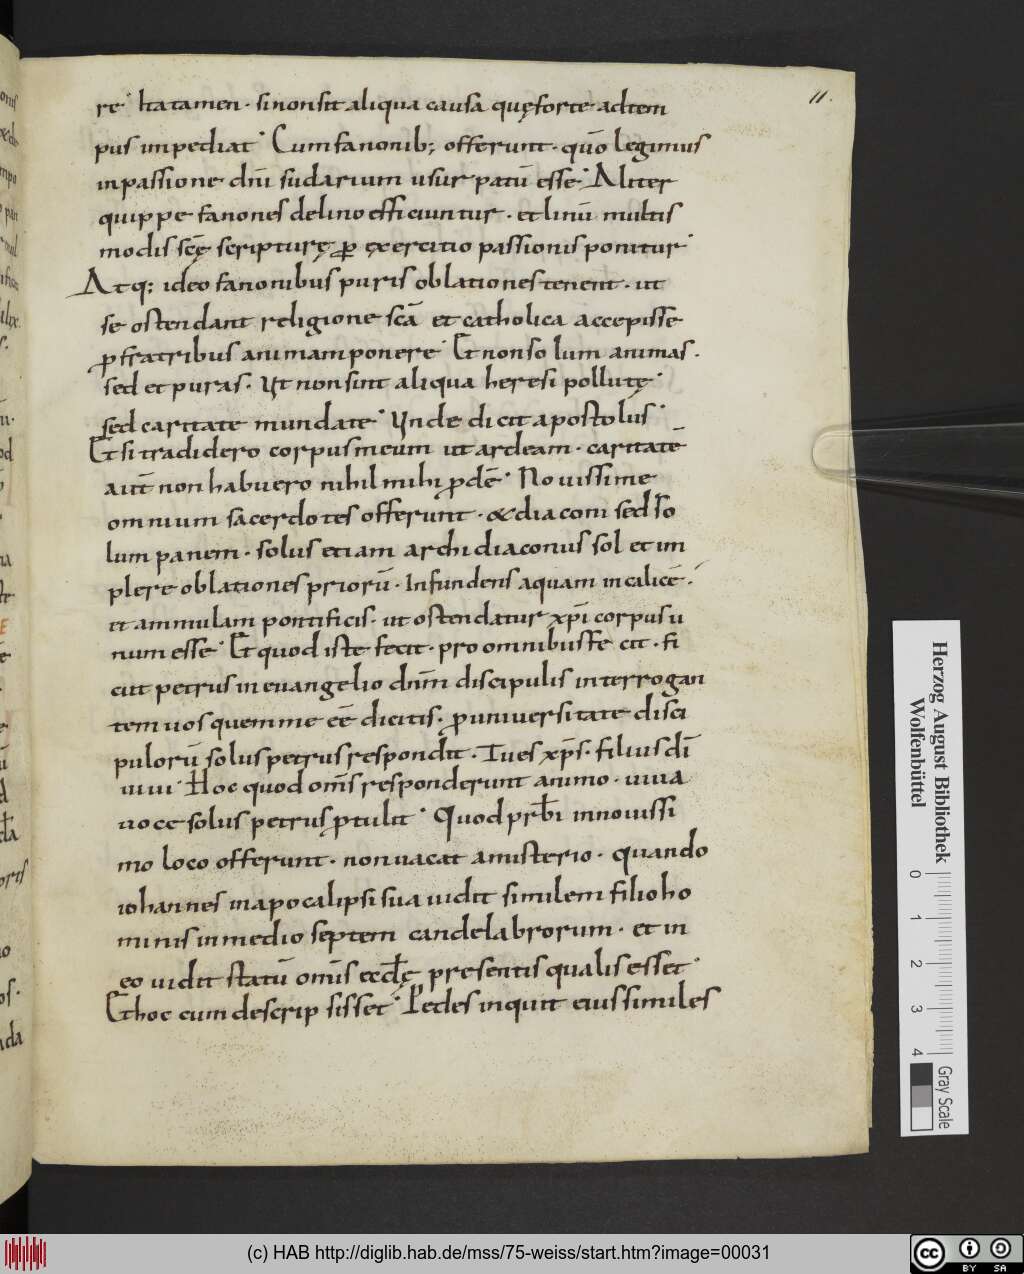 11.
re · Ita tamen · si non sit aliqua causa quę forte ad tem
pus inpediat · Cum fanonib; offerunt · quō legimus
in passione dn̄i sudarium usurpatū esse · Aliter
quippe fanones de lino efficiuntur · et linū multis
modis scę̄ scripturę ꝓ exercitio passionis ponitur ·
Atq; ideo fanonibus puris oblationes tenent · ut
se ostendant religione scā et catholica accepisse
ꝓ fratribus animam ponere · Et non solum animas ·
sed et puras · Ut non sint aliqua heresi pollutę ·
sed caritate mundate · Unde dicit apostolus ·
Et si tradidero corpus meum ut ardeam · caritatē
aut̄ non habuero nihil mihi ꝓdē · Novissime
omnium sacerdotes offerunt · & diaconi sed so
lum panem · solus etiam archidiaconus sol et im
plere oblationes priorū · Infundens aquam in calicē ·
et ammulam pontificis · ut ostendatur xp̄i corpus u
num esse · Et quod iste fecit · pro omnibus fecit · si
cut petrus in evangelio dnm̄ discipulis interrogan
tem uos quem me eē dicitis · ꝓ universitate disci
pulorū solus petrus respondit · Tu es xp̄s · filius dī
uiui · Hoc quod om̄s responderunt animo · uiua
uoce solus petrus ꝓtulit · Quod prb̄i in novissi
mo loco offerunt · non uacat a misterio · quando
iohannes in apocalipsi sua uidit similem filio ho
minis in medio septem candelabrorum · et in
eo uidit statū om̄is eccł̄ę presentis qualis esset ·
Et hoc cum descripsisset · Pedes inquit eius similes
Herzog August Bibliothek
Wolfenbüttel
0 1 2 3 4
Gray Scale
(c) HAB http://diglib.hab.de/mss/75-weiss/start.htm?image=00031
cc BY SA